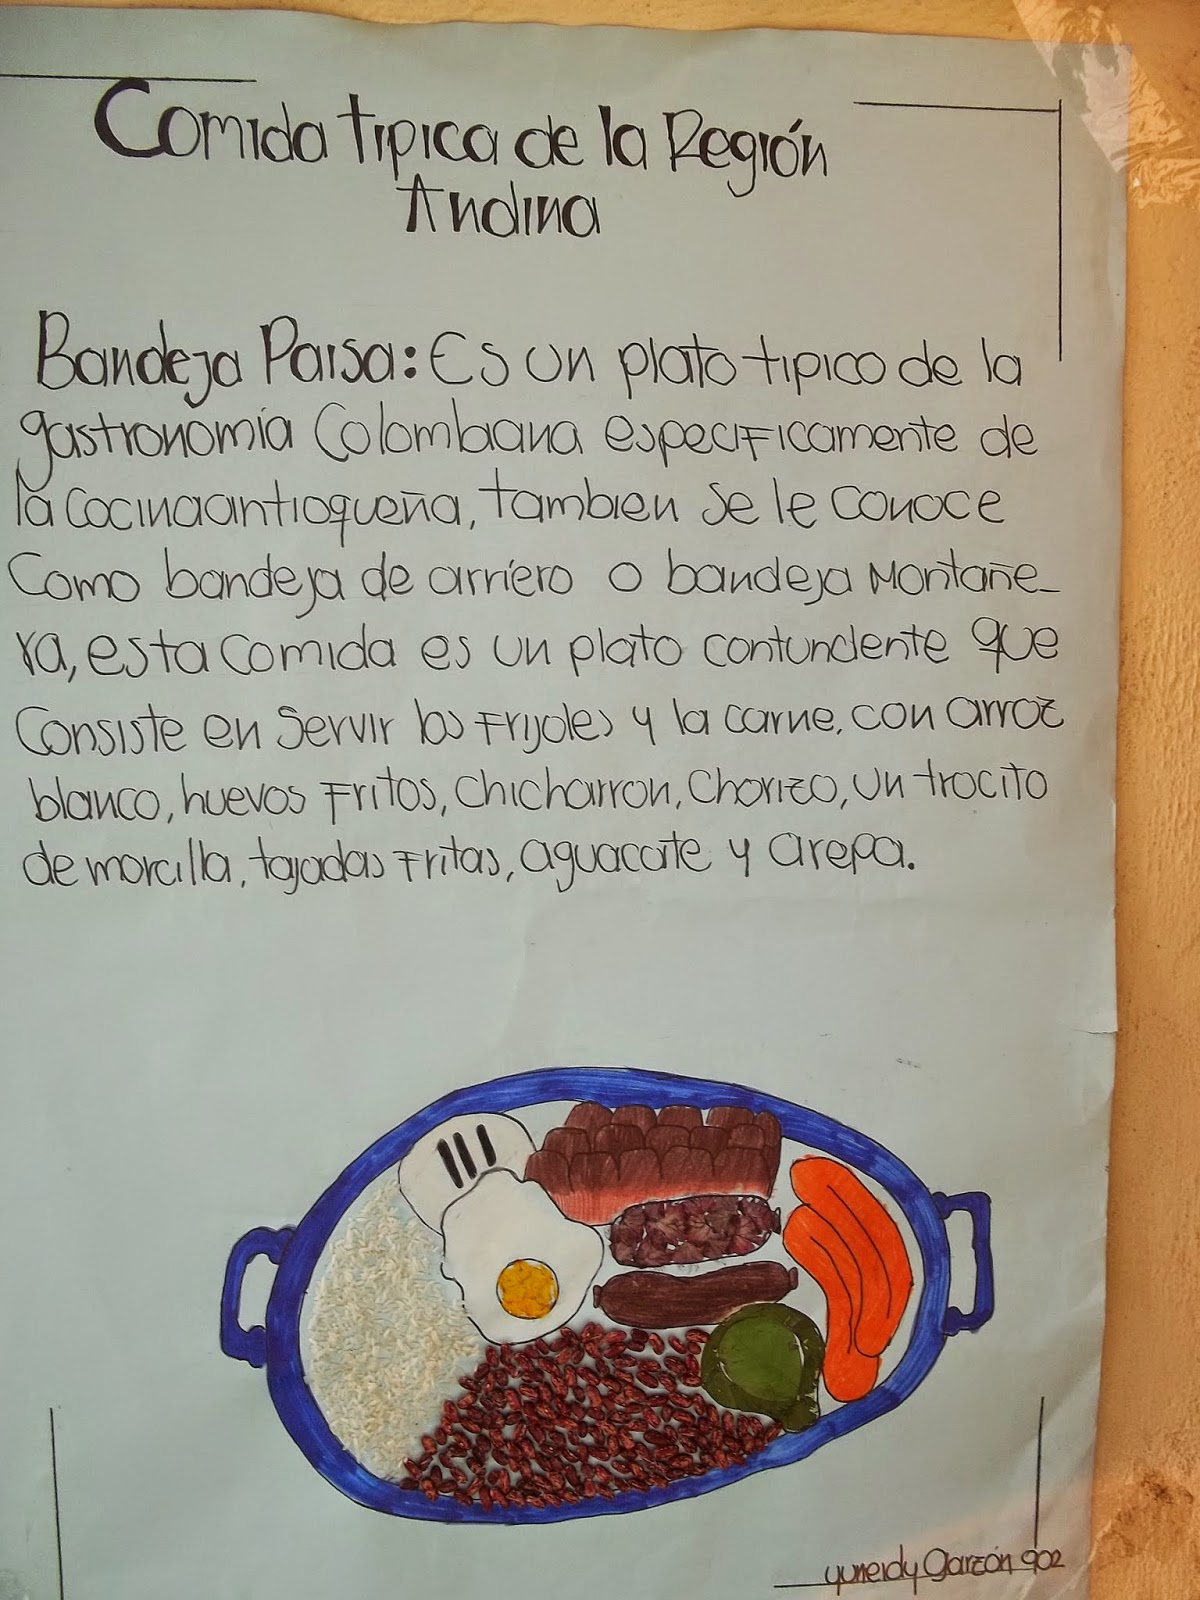 Comida tipica de la Región
Andina
Bandeja Paisa: Es un plato tipico de la
gastronomía Colombiana especificamente de
la cocina antioqueña, tambien se le conoce
Como bandeja de arriero o bandeja Montañe-
ra, esta comida es un plato contundente que
Consiste en servir los frijoles y la carne, con arroz
blanco, huevos fritos, chicharron, chorizo, un trocito
de morcilla, tajadas fritas, aguacate y arepa.
yuneidy Garzón 902